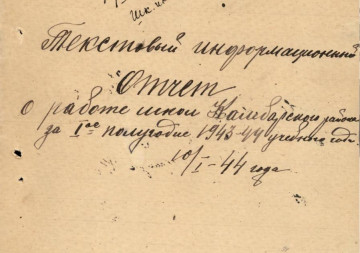 Текстовый информационный
Отчет
о работе школ Камбарского района
за Iое полугодие 1943-44 учебного года
10/I-44 года